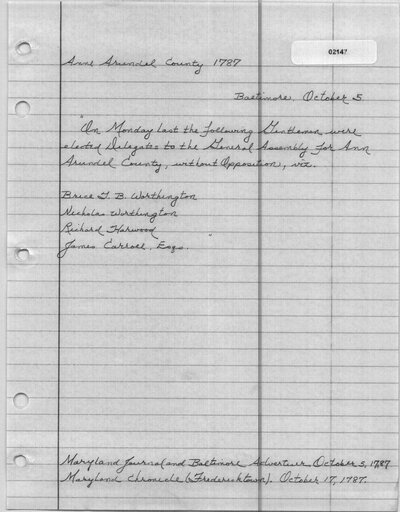 02147
Anne Arundel County 1787
Baltimore, October 5
"On Monday last the following Gentlemen were
elected Delegates to the General Assembly for Ann
Arundel County, without Opposition, viz.
Brice T. B. Worthington
Nicholas Worthington
Richard Harwood
James Carroll, Esqs. "
Maryland Journal and Baltimore Advertiser October 5, 1787
Maryland Chronicle (Fredericktown). October 17, 1787.